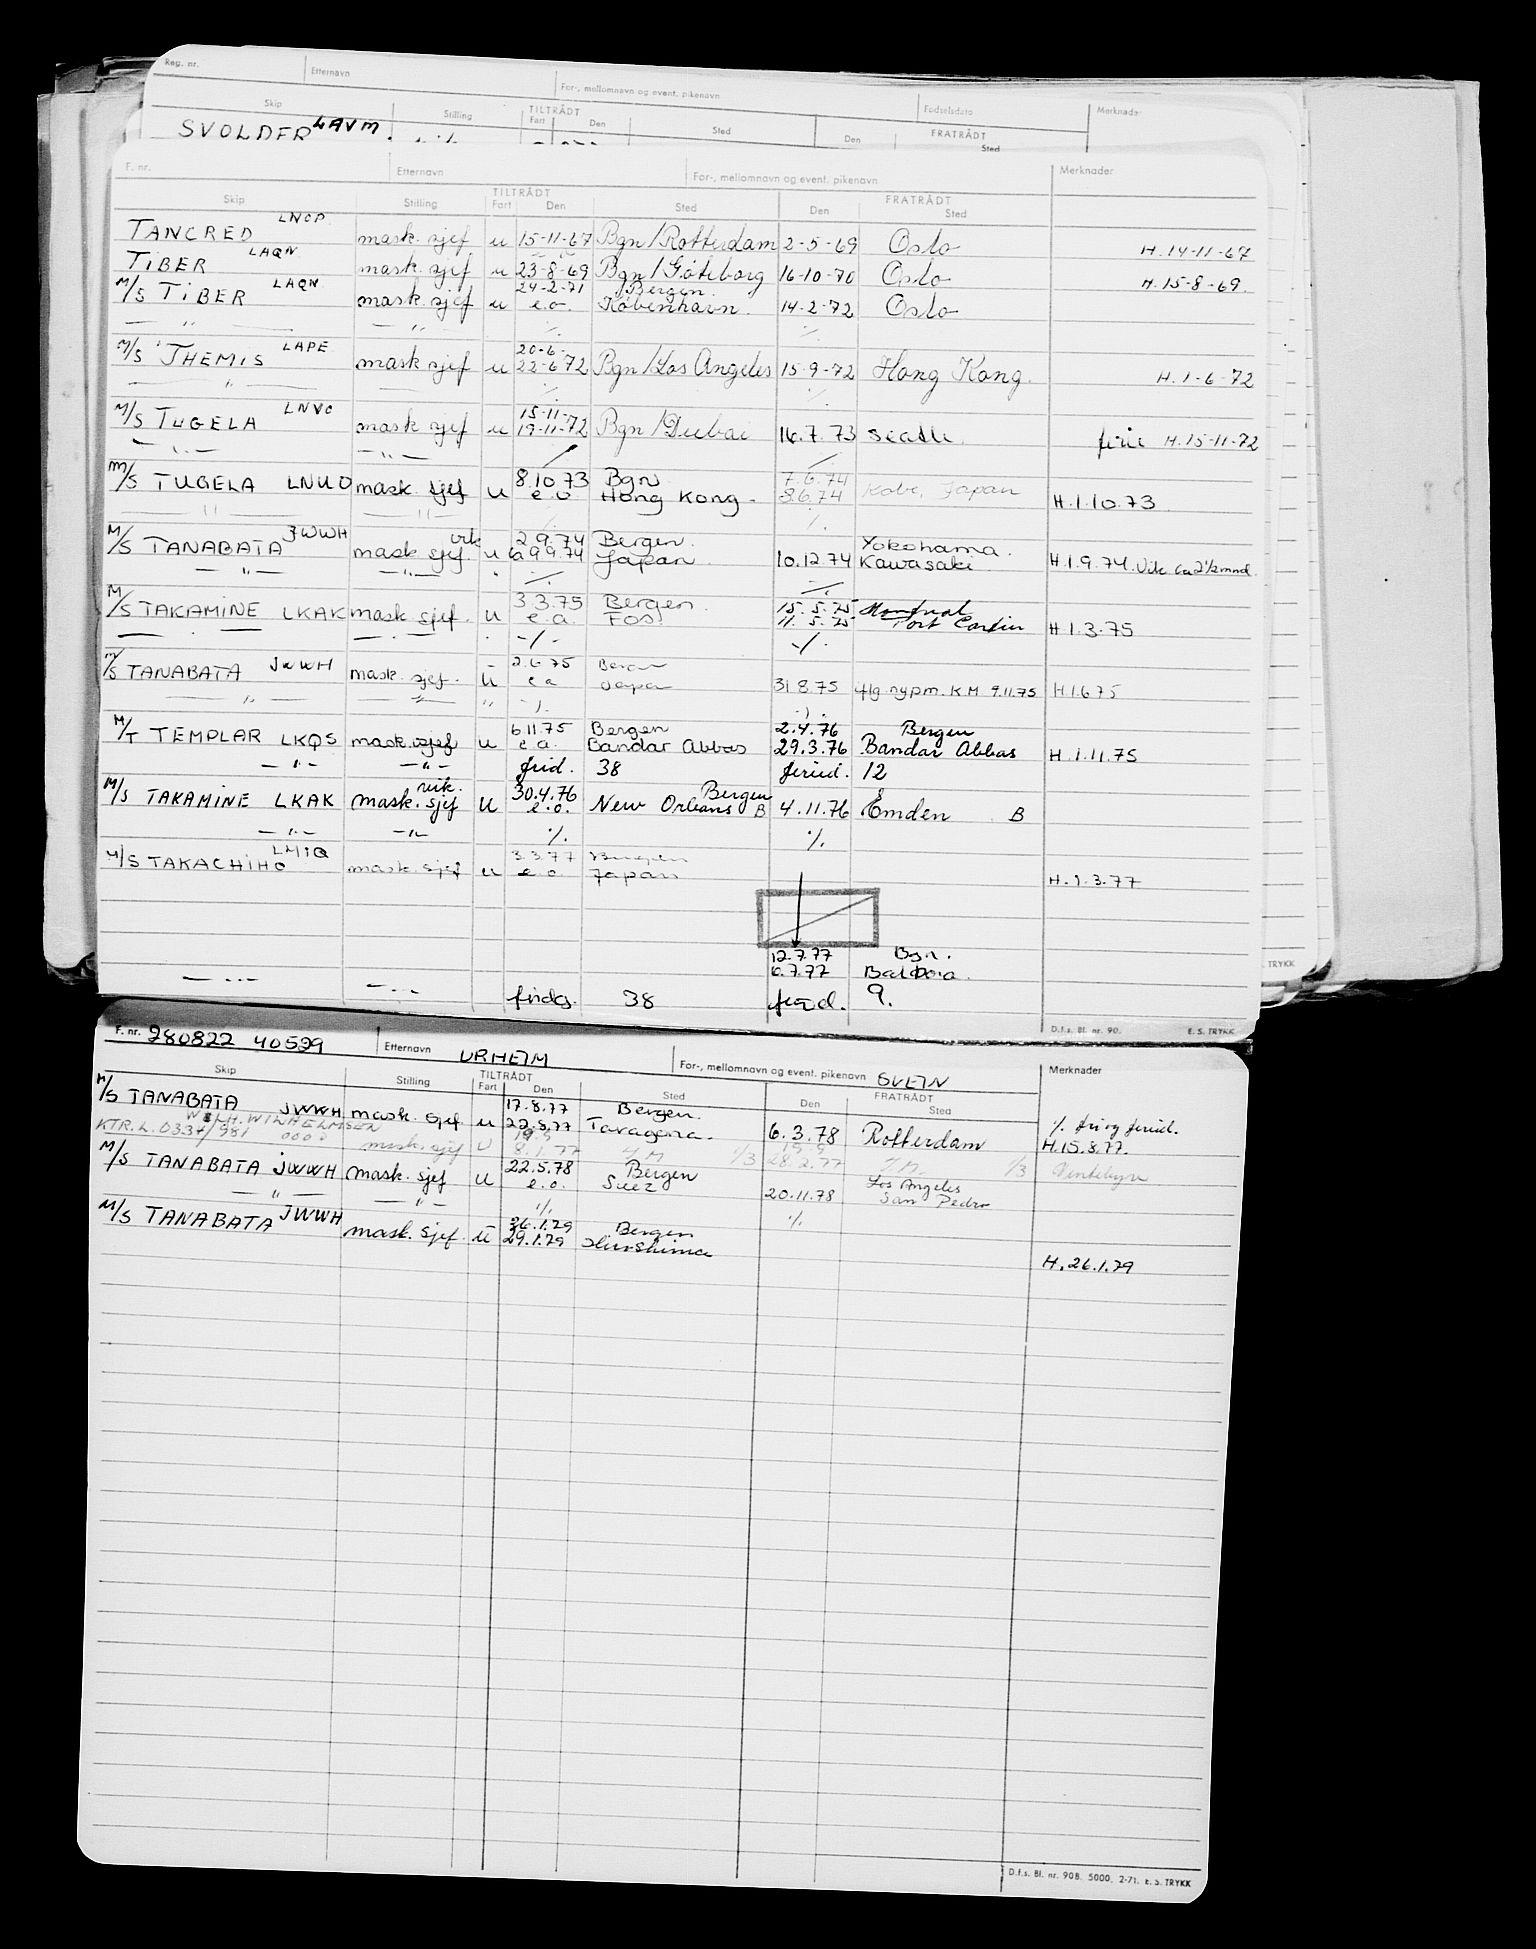 Reg. nr. Etternavn For-, mellomnavn og event. pikenavn Fødselsdato Merknader
Skip Stilling TILTRÅDT Fart Den Sted Den FRATRÅDT Sted
SVOLDER LAVM
F. nr. Etternavn For-, mellomnavn og event. pikenavn Merknader
Skip Stilling TILTRÅDT Fart Den Sted Den FRATRÅDT Sted
TANCRED LNOP mask. sjef u 15-11-67 Bgn/Rotterdam 2-5-69 Oslo H. 14-11-67
TIBER LAQN mask. sjef u 23-8-69 Bgn/Göteborg 16-10-70 Oslo H. 15-8-69.
24-2-71 Bergen.
M/S TIBER LAQN mask. sjef u e.o. København. 14-2-72 Oslo
— " — — " — ./. ./.
20-6-
M/S THEMIS LAPE mask sjef u 22-6-72 Bgn/Los Angeles 15-9-72 Hong Kong. H. 1-6-72
— " — ./. ./.
15-11-
M/S TUGELA LNVO mask sjef u 19-11-72 Bgn/Dubai 16.7.73 Seattle. ferie H. 15-11-72
— " — — " —
8.10.73 Bgn 7.6.74
M/S TUGELA LNUO mask. sjef u e o Hong Kong. 8.6.74 Kobe, Japan H.1.10.73
— " — — " — ./. ./.
vik 2.9.74 Bergen. Yokohama.
M/S TANABATA JWWH mask sjef. u ca 9.9.74 Japan. 10.12.74 Kawasaki H.1.9.74. Vik ca 2½ mnd.
— " — — " — ./. ./.
3.3.75 Bergen. 15.5.75
M/S TAKAMINE LKAK mask sjef. u e.a. Fos. 11.5.75 Port Cartier H 1.3.75
— . — — . — -/- -/-
2.6.75 Bergen
M/S TANABATA JWWH mask. sjef. u e a Japan 31 8.75 flg. nypm. K M 9.11.75 H.1.6.75
— " — — " — " ./.
6.11.75 Bergen 2.4.76 Bergen
M/T TEMPLAR LKQS mask. sjef u e a. Bandar Abbas 29.3.76 Bandar Abbas H.1.11.75
— " — — " — frid. 38 feried. 12
vik. 30.4.76 Bergen
M/S TAKAMINE LKAK mask. sjef u e.o. New Orleans B 4.11.76 Emden B
— " — — " — ./. ./.
3.3.77 Bergen
M/S TAKACHIHO LMIQ mask. sjef u e.o. Japan H.1.3.77
12.7.77 Bgn.
6.7.77 Balboa.
— " — — " — fridg. 38 feried. 9.
D.f.s. Bl. nr. 90. E. S. TRYKK
TRYKK
F. nr. 280822 40529 Etternavn URHEIM For-, mellomnavn og event. pikenavn SVEIN Merknader
Skip Stilling TILTRÅDT Fart Den Sted Den FRATRÅDT Sted
17.8.77 Bergen. ./. fri og feried.
M/S TANABATA JWWH mask. sjef u 22.8.77 Taragona. 6.3.78 Rotterdam H.15.8.77.
WILH. WILHELMSEN
KTR.L.0337/981 0000 mask. sjef U 8.1.77 1/3 28.2.77 1/3
22.5.78 Bergen Los Angeles
M/S TANABATA JWWH mask. sjef u e.o. Suez 20.11.78 San Pedro
— " — — " — ./. ./.
26.1.79 Bergen
M/S TANABATA JWWH mask. sjef. u 29.1.79 Hiroshima H.26.1.79
D.f.s. Bl. nr. 90B. 5000. 2-71. E. S. TRYKK